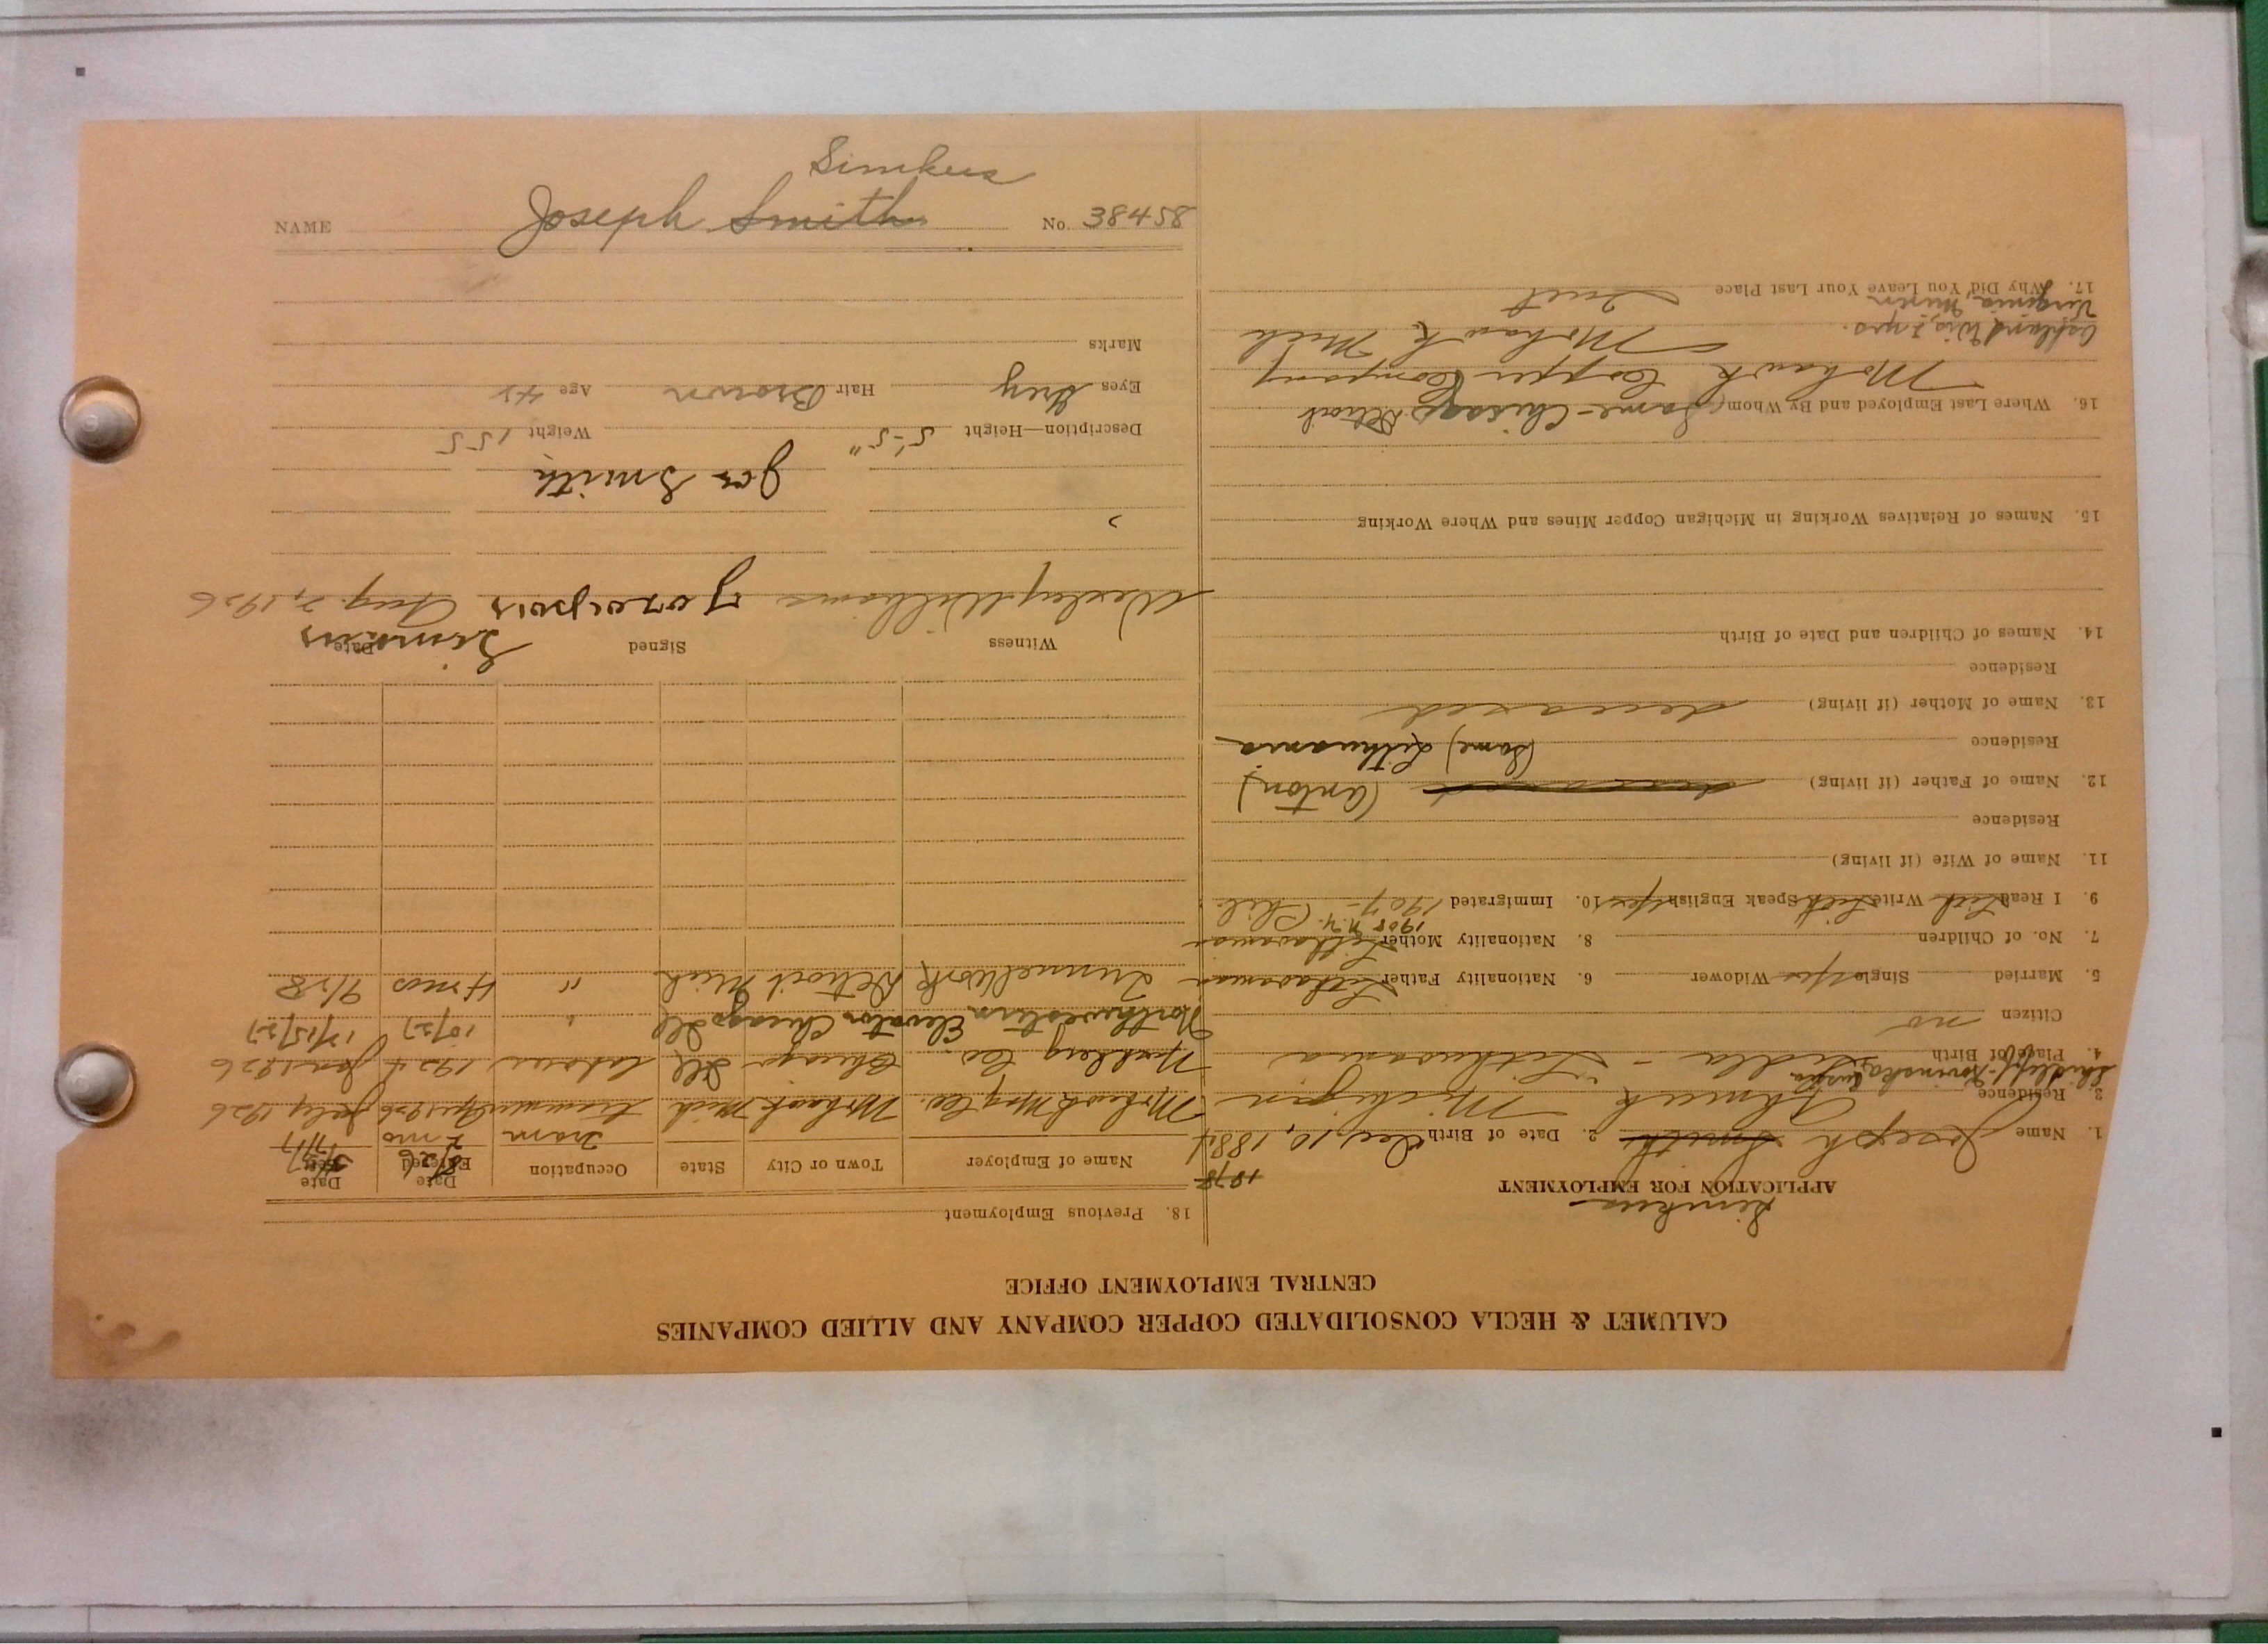 CALUMET & HECLA CONSOLIDATED COPPER COMPANY AND ALLIED COMPANIES
CENTRAL EMPLOYMENT OFFICE
Simkus
APPLICATION FOR EMPLOYMENT
1878
1. Name Joseph Smith 2. Date of Birth Dec, 10, 1884
3. Residence Ahmeek Michigan
4. Place of Birth - Lithuania
Citizen no
5. Married Single yes Widower 6. Nationality Father Lithuanian
7. No. of Children 8. Nationality Mother Lithuanian
1908 N.Y.
9. I Read Lith Write Lith Speak English yes 10. Immigrated 1907- Phil.
11. Name of Wife (if living)
Residence
12. Name of Father (if living) deceased (Anton)
Residence (Same) Lithuania
13. Name of Mother (if living) deceased
Residence
14. Names of Children and Date of Birth
15. Names of Relatives Working in Michigan Copper Mines and Where Working
16. Where Last Employed and By Whom (Same - Chicago Detroit
Mohawk Copper Company
Ashland Wis, 2 yrs. Mohawk Mich
Virginia, Minn
17. Why Did You Leave Your Last Place Quit
18. Previous Employment
Name of Employer Town or City State Occupation Date Entered Date Left
8/26
Tram 2 mo
Mohawk Mng Co. Mohawk Mich Trammer 1926 July 1926
Co. Chicago Ill Laborer 1924 Jan 1926
Northwestern Elevator Chicago Ill " 10/27 12/15/27
Tunnel Work Detroit Mich " 4 mos 9/28
Witness Signed Date
Wesley Williams Simkus Aug. 2, 1926
Joe Smith
Description—Height 5'-5" Weight 155
Eyes Grey Hair Brown Age 42
Marks
Simkus
NAME Joseph Smith No. 38458